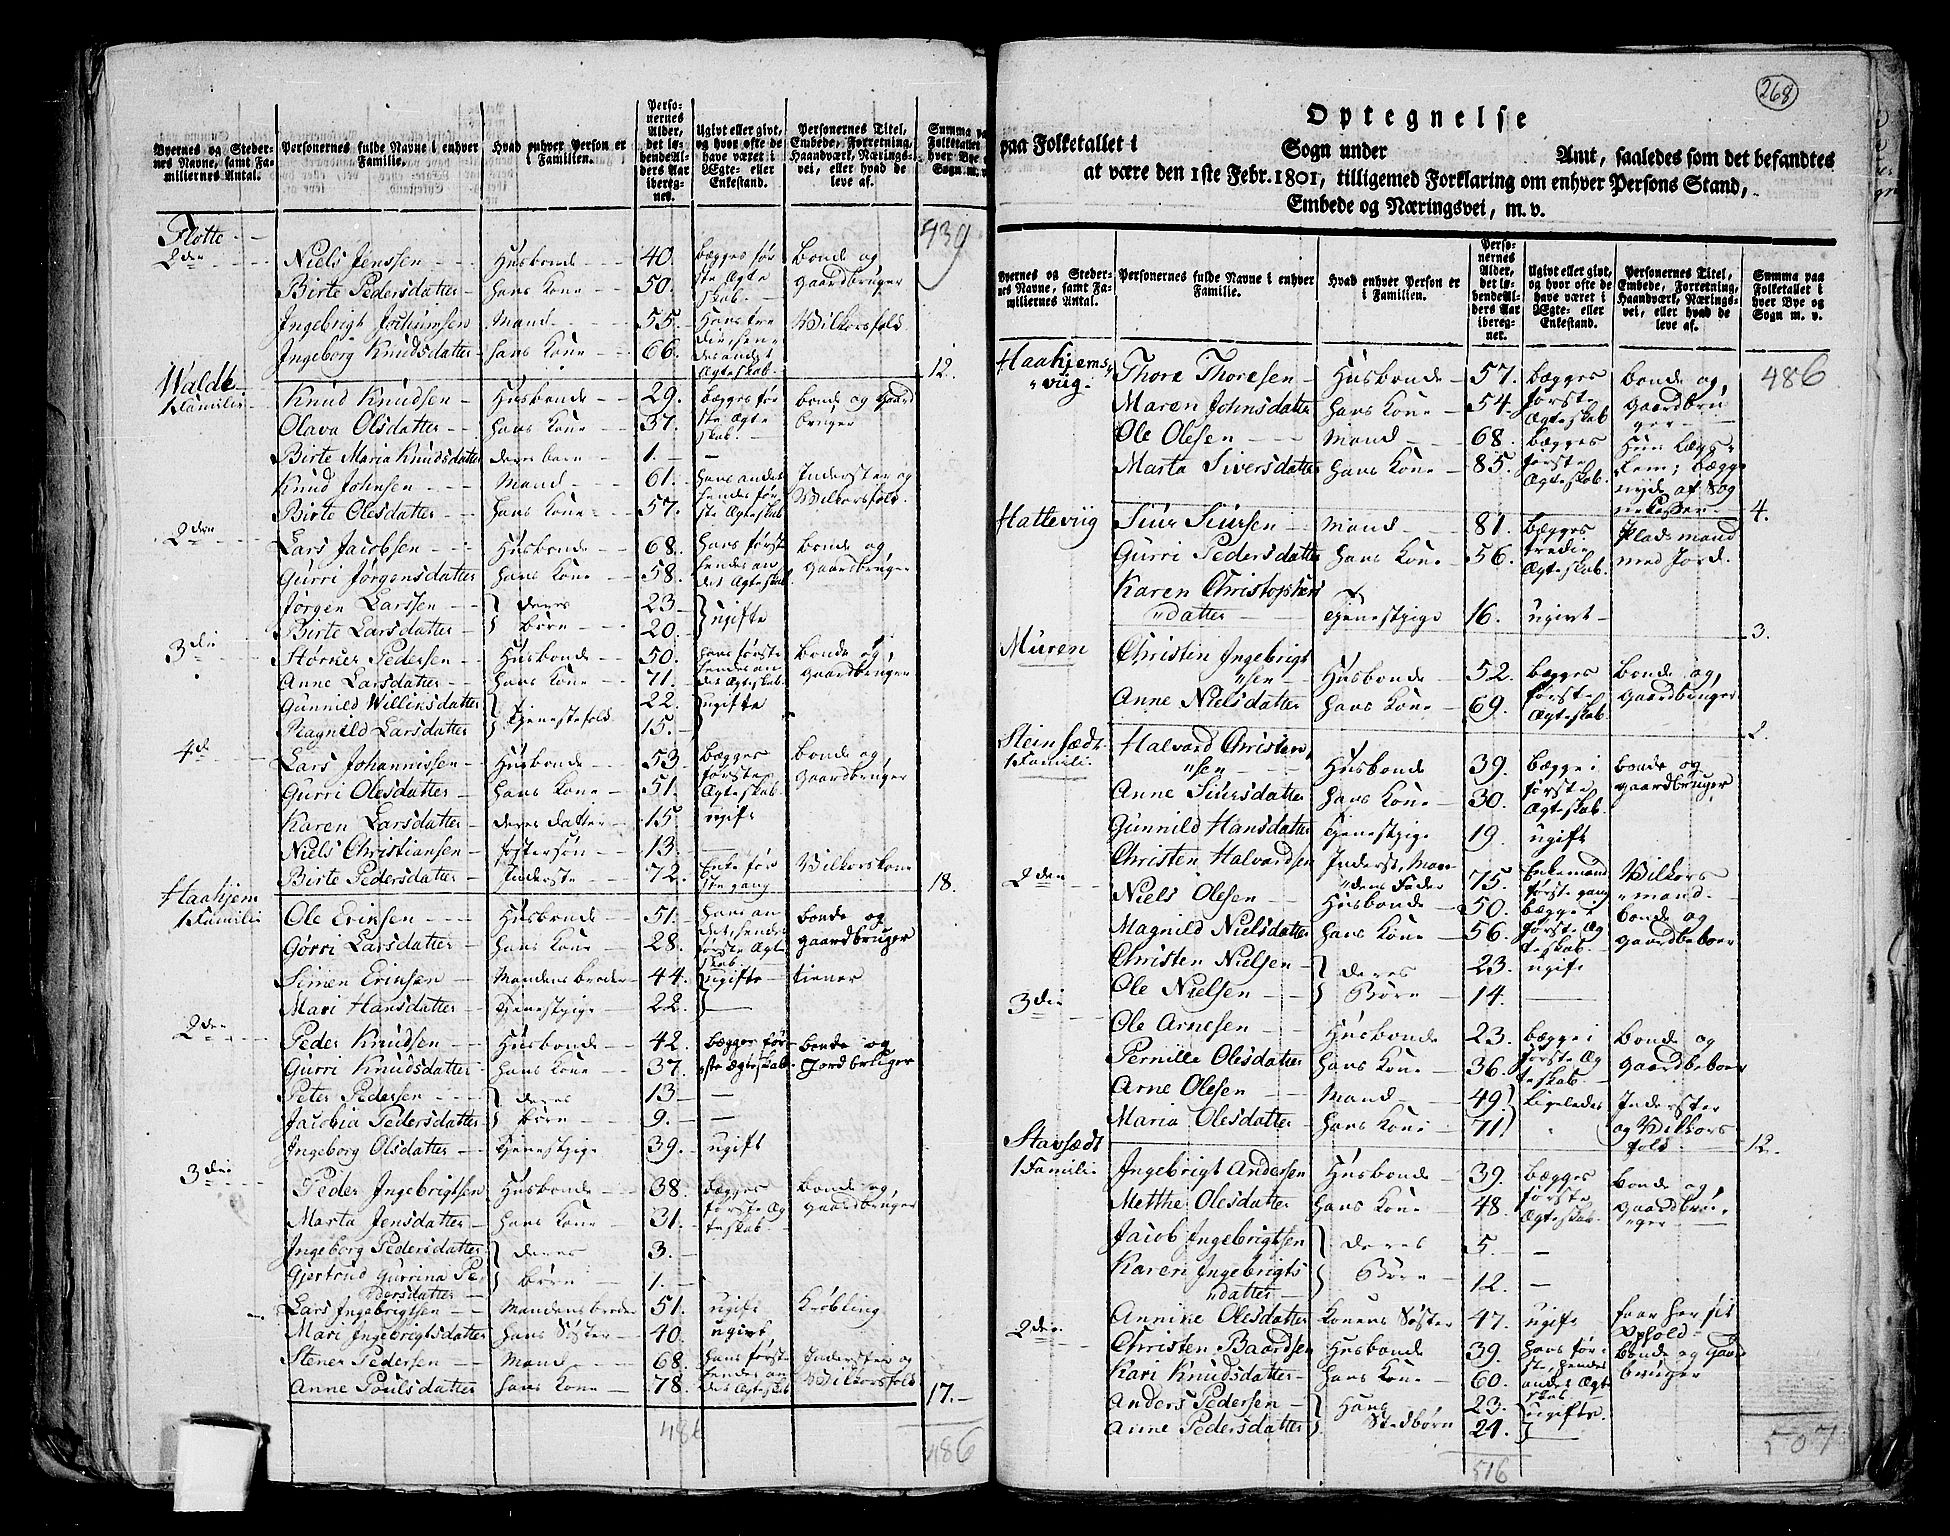 Byernes og Stedernes Navne, samt Familiernes Antal.
Personernes fulde Navne i enhver Familie.
Hvad enhver Person er i Familien.
Personernes Alder, det løbende Alders Aar iberegnet.
Ugivt eller givt, og hvor ofte de have været i Ægte- eller Enkestand.
Personernes Titel, Embede, Forretning, Haandværk, Næringsvei, eller hvad de leve af.
Summa paa Folketallet i hver Bye og Sogn m. v.
439
Flotte
2den Niels Jenssen Husbonde 40. bægges første Ægteskab. bonde og gaardbruger
Birte Pedersdatter hans Kone 50.
Ingebrigt Jochumsen Mand 55. Vilkorsfolk
Ingeborg Knudsdatter hans Kone 66. 12.
Walde
1 Familie Knud Knudsen Husbonde 29. bægges første Ægteskab. bonde og gaardbruger
Olava Olsdatter hans Kone 37.
Birte Maria Knudsdatter deres barn 1.
Knud Johnsen Mand 61. hans andet Inderster og
Birte Olesdatter hans Kone 57. hendes første Ægteskab Vilkorsfolk
2den Lars Jacobsen Husbonde 68. hans første bonde og
Gurri Jørgensdatter hans Kone 58. hendes andet Ægteskab gaardbruger
Jørgen Larssen deres 23 ugifte
Birte Larsdatter børn 20.
3die Størker Pedersen Husbonde 50. hans første bonde og
Anne Larsdatter hans Kone 71. hendes andet Ægteskab gaardbruger
Gunnild Williksdatter 22. ugifte
Ragnild Larsdatter Tjenestefolk 15.
4de Lars Johannissen Husbonde 53 bægges bonde og
Gurri Olesdatter hans Kone 51. første Ægteskab gaardbruger
Karen Larsdatter deres datter 15 ugift
Niels Christiansen fostersøn 13
Birte Pedersdatter Inderste 72. Enke første gang Vilkorskone 18.
Haahjem
1 Familie Ole Erinsen Husbonde 51. hans andet, hendes bonde og
Gørri Larsdatter hans Kone 28. første Ægteskab. gaardbruger
Simen Erinsen Mandens broder 44. ugifte tiener
Mari Hansdatter Tjenestpige 22.
2den Peder Knudsen Husbonde 42. bægges første bonde og
Gurri Knudsdatter hans Kone 37. Ægteskab Jordbruger
Peter Pedersen deres 13
Jacobia Pedersdatter børn 9.
Ingeborg Olsdatter Tjenestpige 39. ugift
3die Peder Ingebrigtsen Husbonde 38. bægges bonde og
Marta Jensdatter hans Kone 31. første Ægteskab gaardbruger
Ingeborg Pedersdatter deres 3.
Gjertrud Gurrina Pedersdatter børn 1.
Lars Ingebrigtsen Mandens broder 51. ugift Krøbling
Mari Ingebrigtsdatter hans Søster 40. ugivt
Stener Pedersen Mand 68. hans første Inderster og
Anne Poulsdatter hans Kone 78. hendes andet Ægteskab Vilkorsfolk 17.
486
486
268
Optegnelse
paa Folketallet i Sogn under Amt, saaledes som det befandtes
at være den 1ste Febr. 1801, tilligemed Forklaring om enhver Persons Stand,
Embede og Næringsvei, m. v.
Byernes og Stedernes Navne, samt Familiernes Antal.
Personernes fulde Navne i enhver Familie.
Hvad enhver Person er i Familien.
Personernes Alder, det løbende Alders Aar iberegnet.
Ugivt eller givt, og hvor ofte de have været i Ægte- eller Enkestand.
Personernes Titel, Embede, Forretning, Haandværk, Næringsvei, eller hvad de leve af.
Summa paa Folketallet i hver Bye og Sogn m. v.
486
Haahjems
viig Thore Thoresen Husbonde 57. bægges bonde og
Maren Johnsdatter hans Kone 54. første Ægteskab gaardbruger
Ole Olesen Mand 68. bægges
Marta Siversdatter hans Kone 85. første Ægteskab. 4.
Hatteviig Siur Siursen Mand 81. bægges Pladsmand
Gurri Pedersdatter hans Kone 56. tredie Ægteskab. med Jord.
Karen Christophers
datter Tjenestpige 16. ugivt 3.
Muren Christen Ingebrigt
sen Husbonde 52. bægges bonde og
Anne Nielsdatter hans Kone 69. første Ægteskab gaardbruger 2.
Steinsædt
1 Familie Halvard Christen
sen Husbonde 39. bægge i bonde og
Anne Siursdatter hans Kone 30. første Ægteskab. gaardbruger
Gunnild Hansdatter Tjenestpige 19. ugift
Christen Halvardsen Inderst, Mandens Fader 75. Enkemand første gang Vilkorsmand
2den Niels Olesen Husbonde 50. bægge i bonde og
Magnild Nielsdatter hans Kone 56. første Ægteskab. gaardbeboer
Christen Nielsen deres 23. ugift
Ole Nielsen Børn 14.
3die Ole Arnesen Husbonde 23. bægge i bonde og
Pernille Olesdatter hans Kone 36. første Ægteskab gaardbeboer
Arne Olesen Mand 49. ligeledes Inderster
Maria Olesdatter hans Kone 71. og Vilkorsfolk 12.
Stavsædt
1 Familie Ingebrigt Andersen Husbonde 39. bægges bonde og
Metthe Olesdatter hans Kone 48. første Ægteskab. gaardbruger
Jacob Ingebrigtsen deres 5.
Karen Ingebrigts
datter Børn 12.
Annine Olesdatter Konens Søster 47. ugift faar her sit Ophold
2den Christen Baardsen Husbonde 39. hans første, hendes bonde og gaard
Kari Knudsdatter hans Kone 60. andet Ægteskab bruger
Anders Pedersen Hans 23. ugifte.
Anne Pedersdatter Stedbørn 21.
516
507